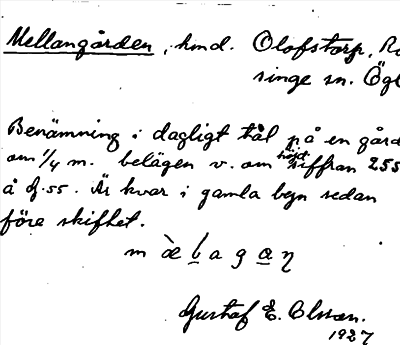 Mellangården, hmd. Olofstorp, Ru
singe sn. Ögl
Benämning i dagligt tal på en gård
om 1/4 m. belägen v. om höjdsiffran 255
å Gf. 55. Är kvar i gamla byn sedan
före skiftet.
m æ̀ l a g a ŋ
Gustaf E. Olsson.
1927